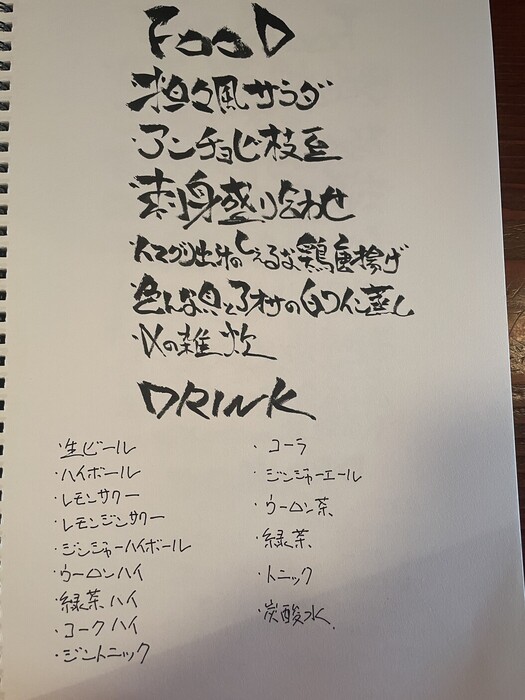 FOOD
坦々風サラダ
アンチョビ枝豆
刺身盛り合わせ
ハマグリ出汁のしみる鶏唐揚げ
色んな魚と野菜の白ワイン蒸し
〆の雑炊
DRINK
・生ビール
・ハイボール
・レモンサワー
・レモンジンサワー
・ジンジャーハイボール
・ウーロンハイ
・緑茶ハイ
・コークハイ
・ジントニック
・コーラ
・ジンジャーエール
・ウーロン茶
・緑茶
・トニック
・炭酸水